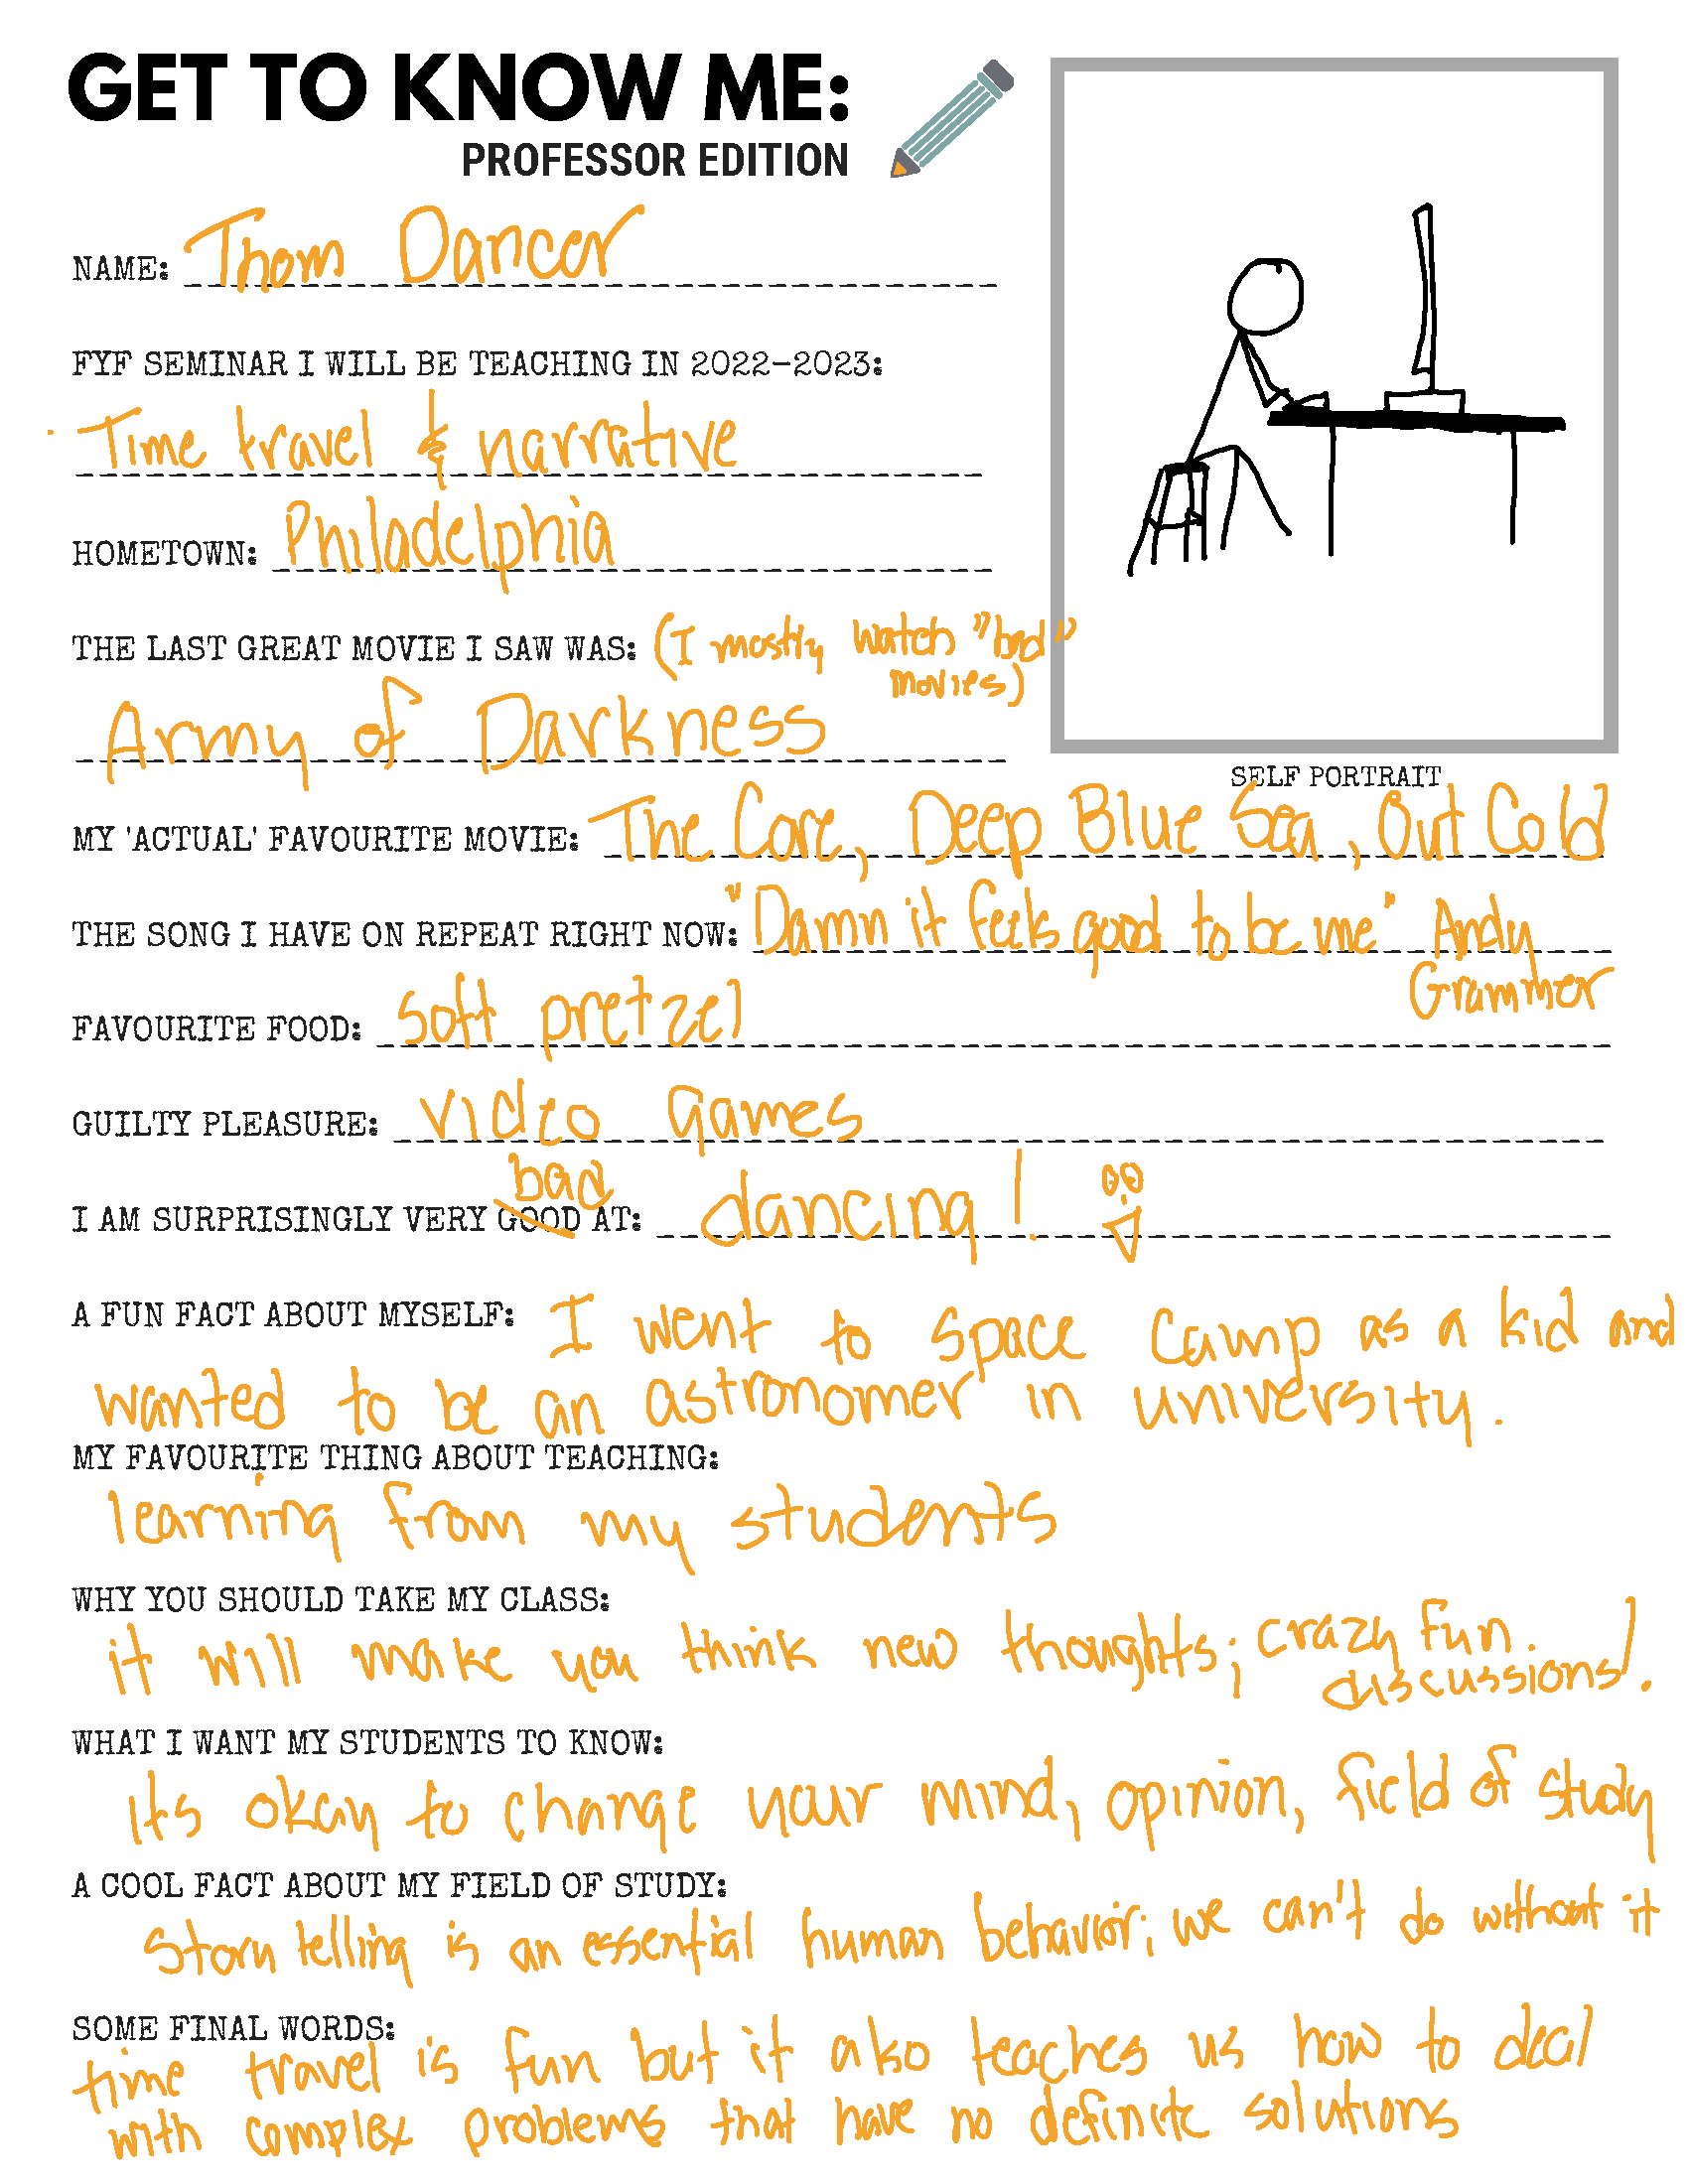 GET TO KNOW ME:
PROFESSOR EDITION
NAME: Thom Dancer
FYF SEMINAR I WILL BE TEACHING IN 2022-2023:
Time travel & narrative
HOMETOWN: Philadelphia
THE LAST GREAT MOVIE I SAW WAS: (I mostly watch "bad"
movies)
Army of Darkness
SELF PORTRAIT
MY 'ACTUAL' FAVOURITE MOVIE: The Core, Deep Blue Sea, Out Cold
THE SONG I HAVE ON REPEAT RIGHT NOW: "Damn it feels good to be me" Andy
Grammer
FAVOURITE FOOD: soft pretzel
GUILTY PLEASURE: video games
bad
I AM SURPRISINGLY VERY GOOD AT: dancing!
A FUN FACT ABOUT MYSELF: I went to space camp as a kid and
wanted to be an astronomer in university.
MY FAVOURITE THING ABOUT TEACHING:
learning from my students
WHY YOU SHOULD TAKE MY CLASS:
it will make you think new thoughts; crazy fun
discussions!
WHAT I WANT MY STUDENTS TO KNOW:
Its okay to change your mind, opinion, field of study
A COOL FACT ABOUT MY FIELD OF STUDY:
Story telling is an essential human behavior; we can't do without it
SOME FINAL WORDS:
time travel is fun but it also teaches us how to deal
with complex problems that have no definite solutions